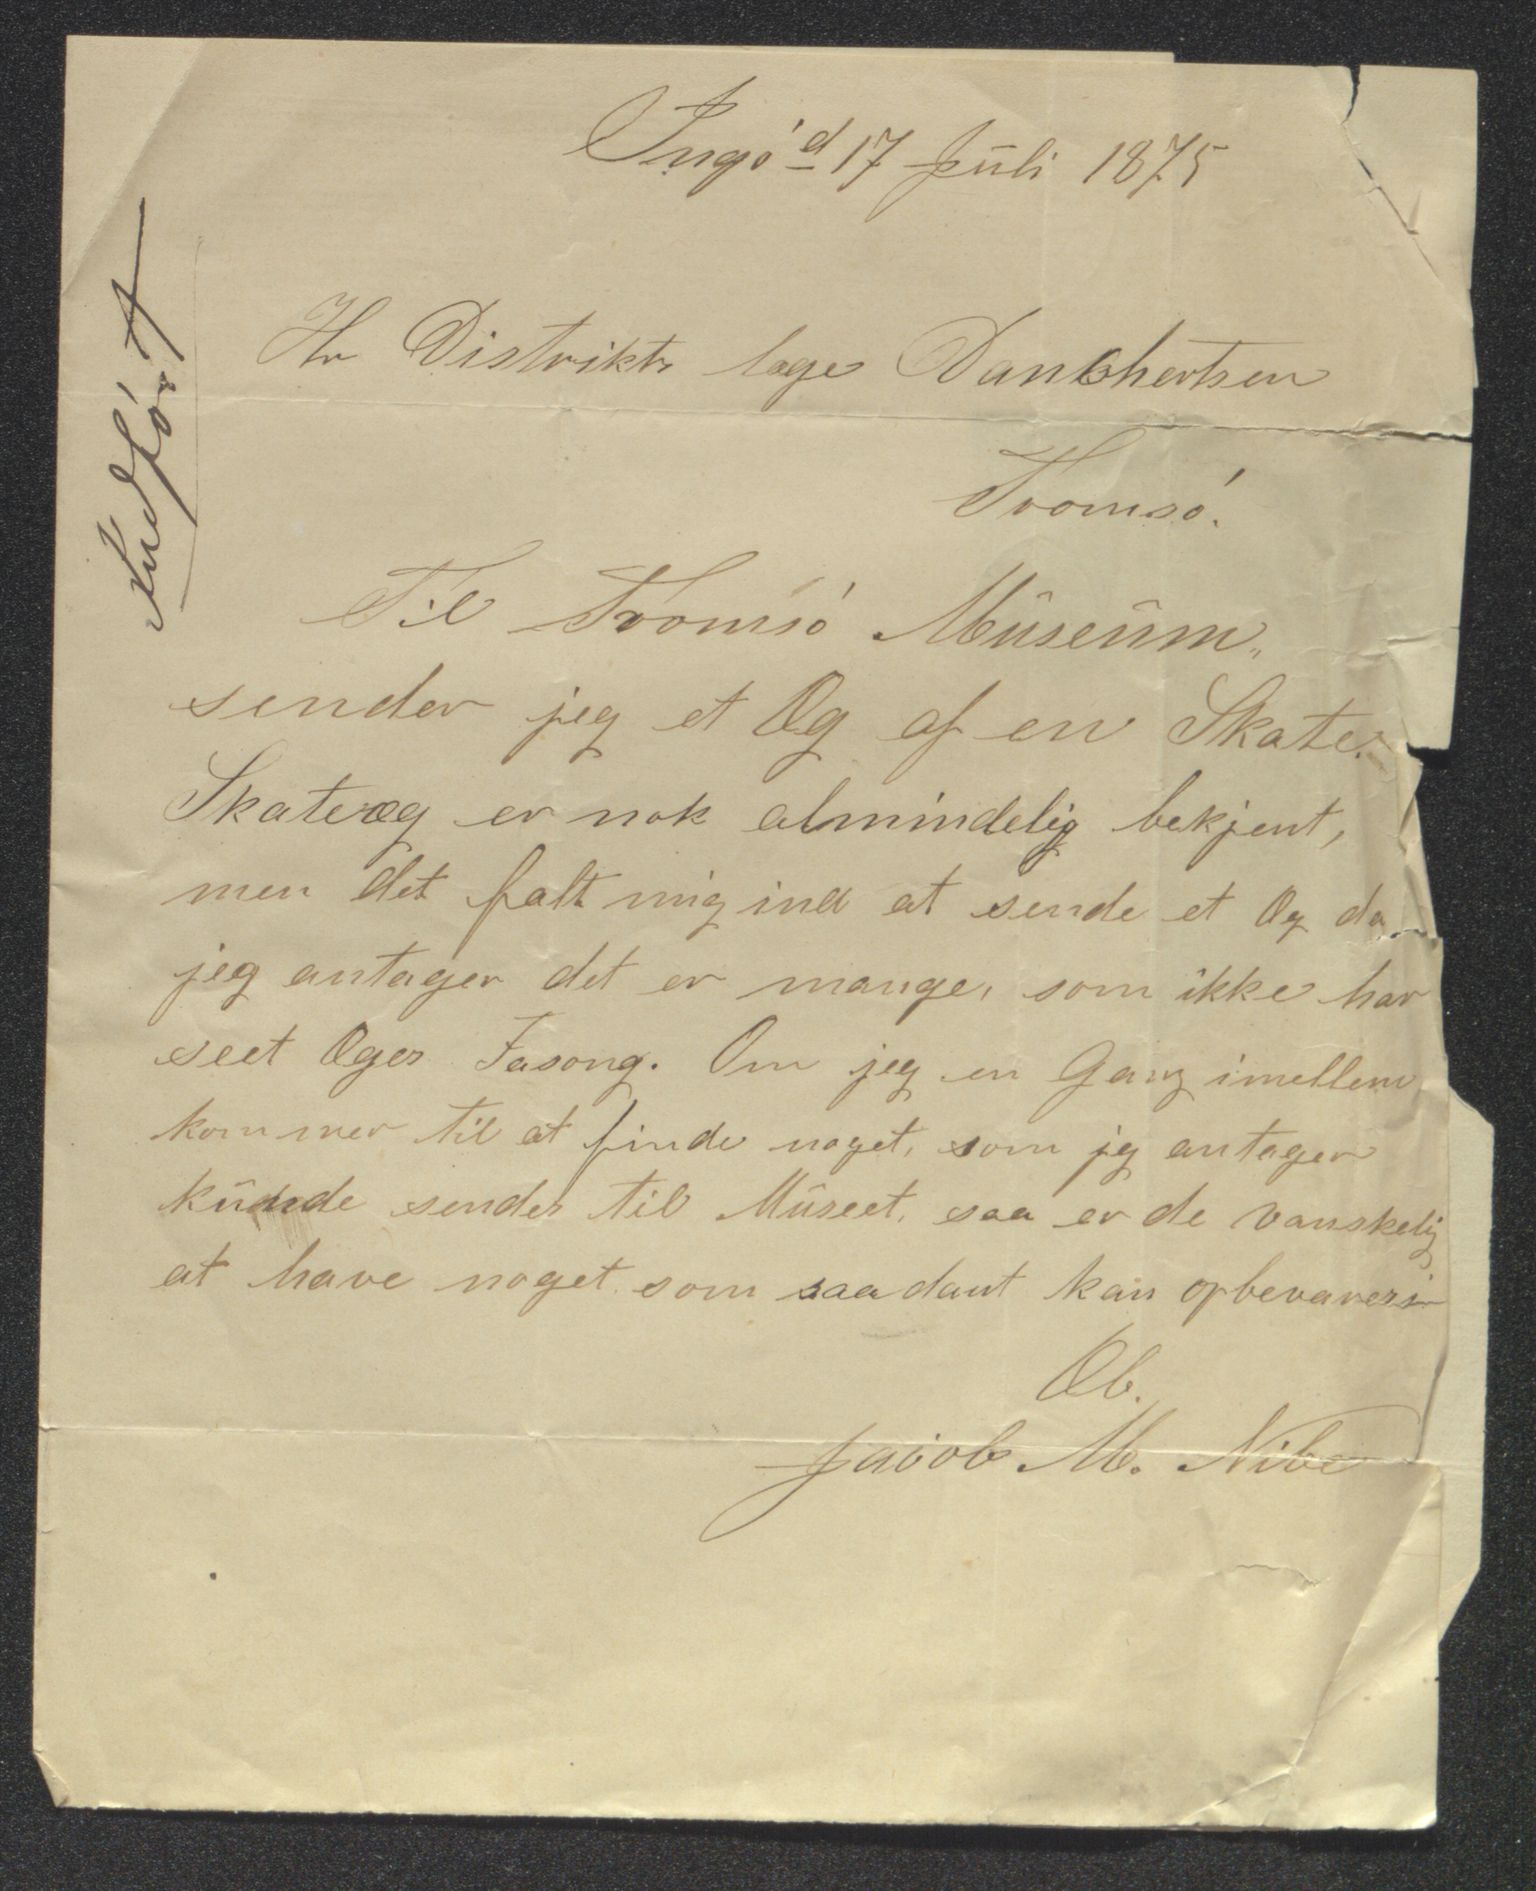 Ingó d 17 Juli 1875
Indfört
Hr Distrikts læge Danchertsen
Tromsó.
Til Tromsó Museum,,
sender jeg et Æg af en Skate.
Skateæg er nok almindelig bekjent,
men det falt mig ind at sende et Æg da
jeg antager det er mange, som ikke har
seet Æges Fasong. Om jeg en Gang imellem
kommer til at finde noget, som jeg antager
kunde sendes til Museet, saa er de vanskelig
at have noget som saadant kan opbevares i
Æb.
Jacob M. Nibe